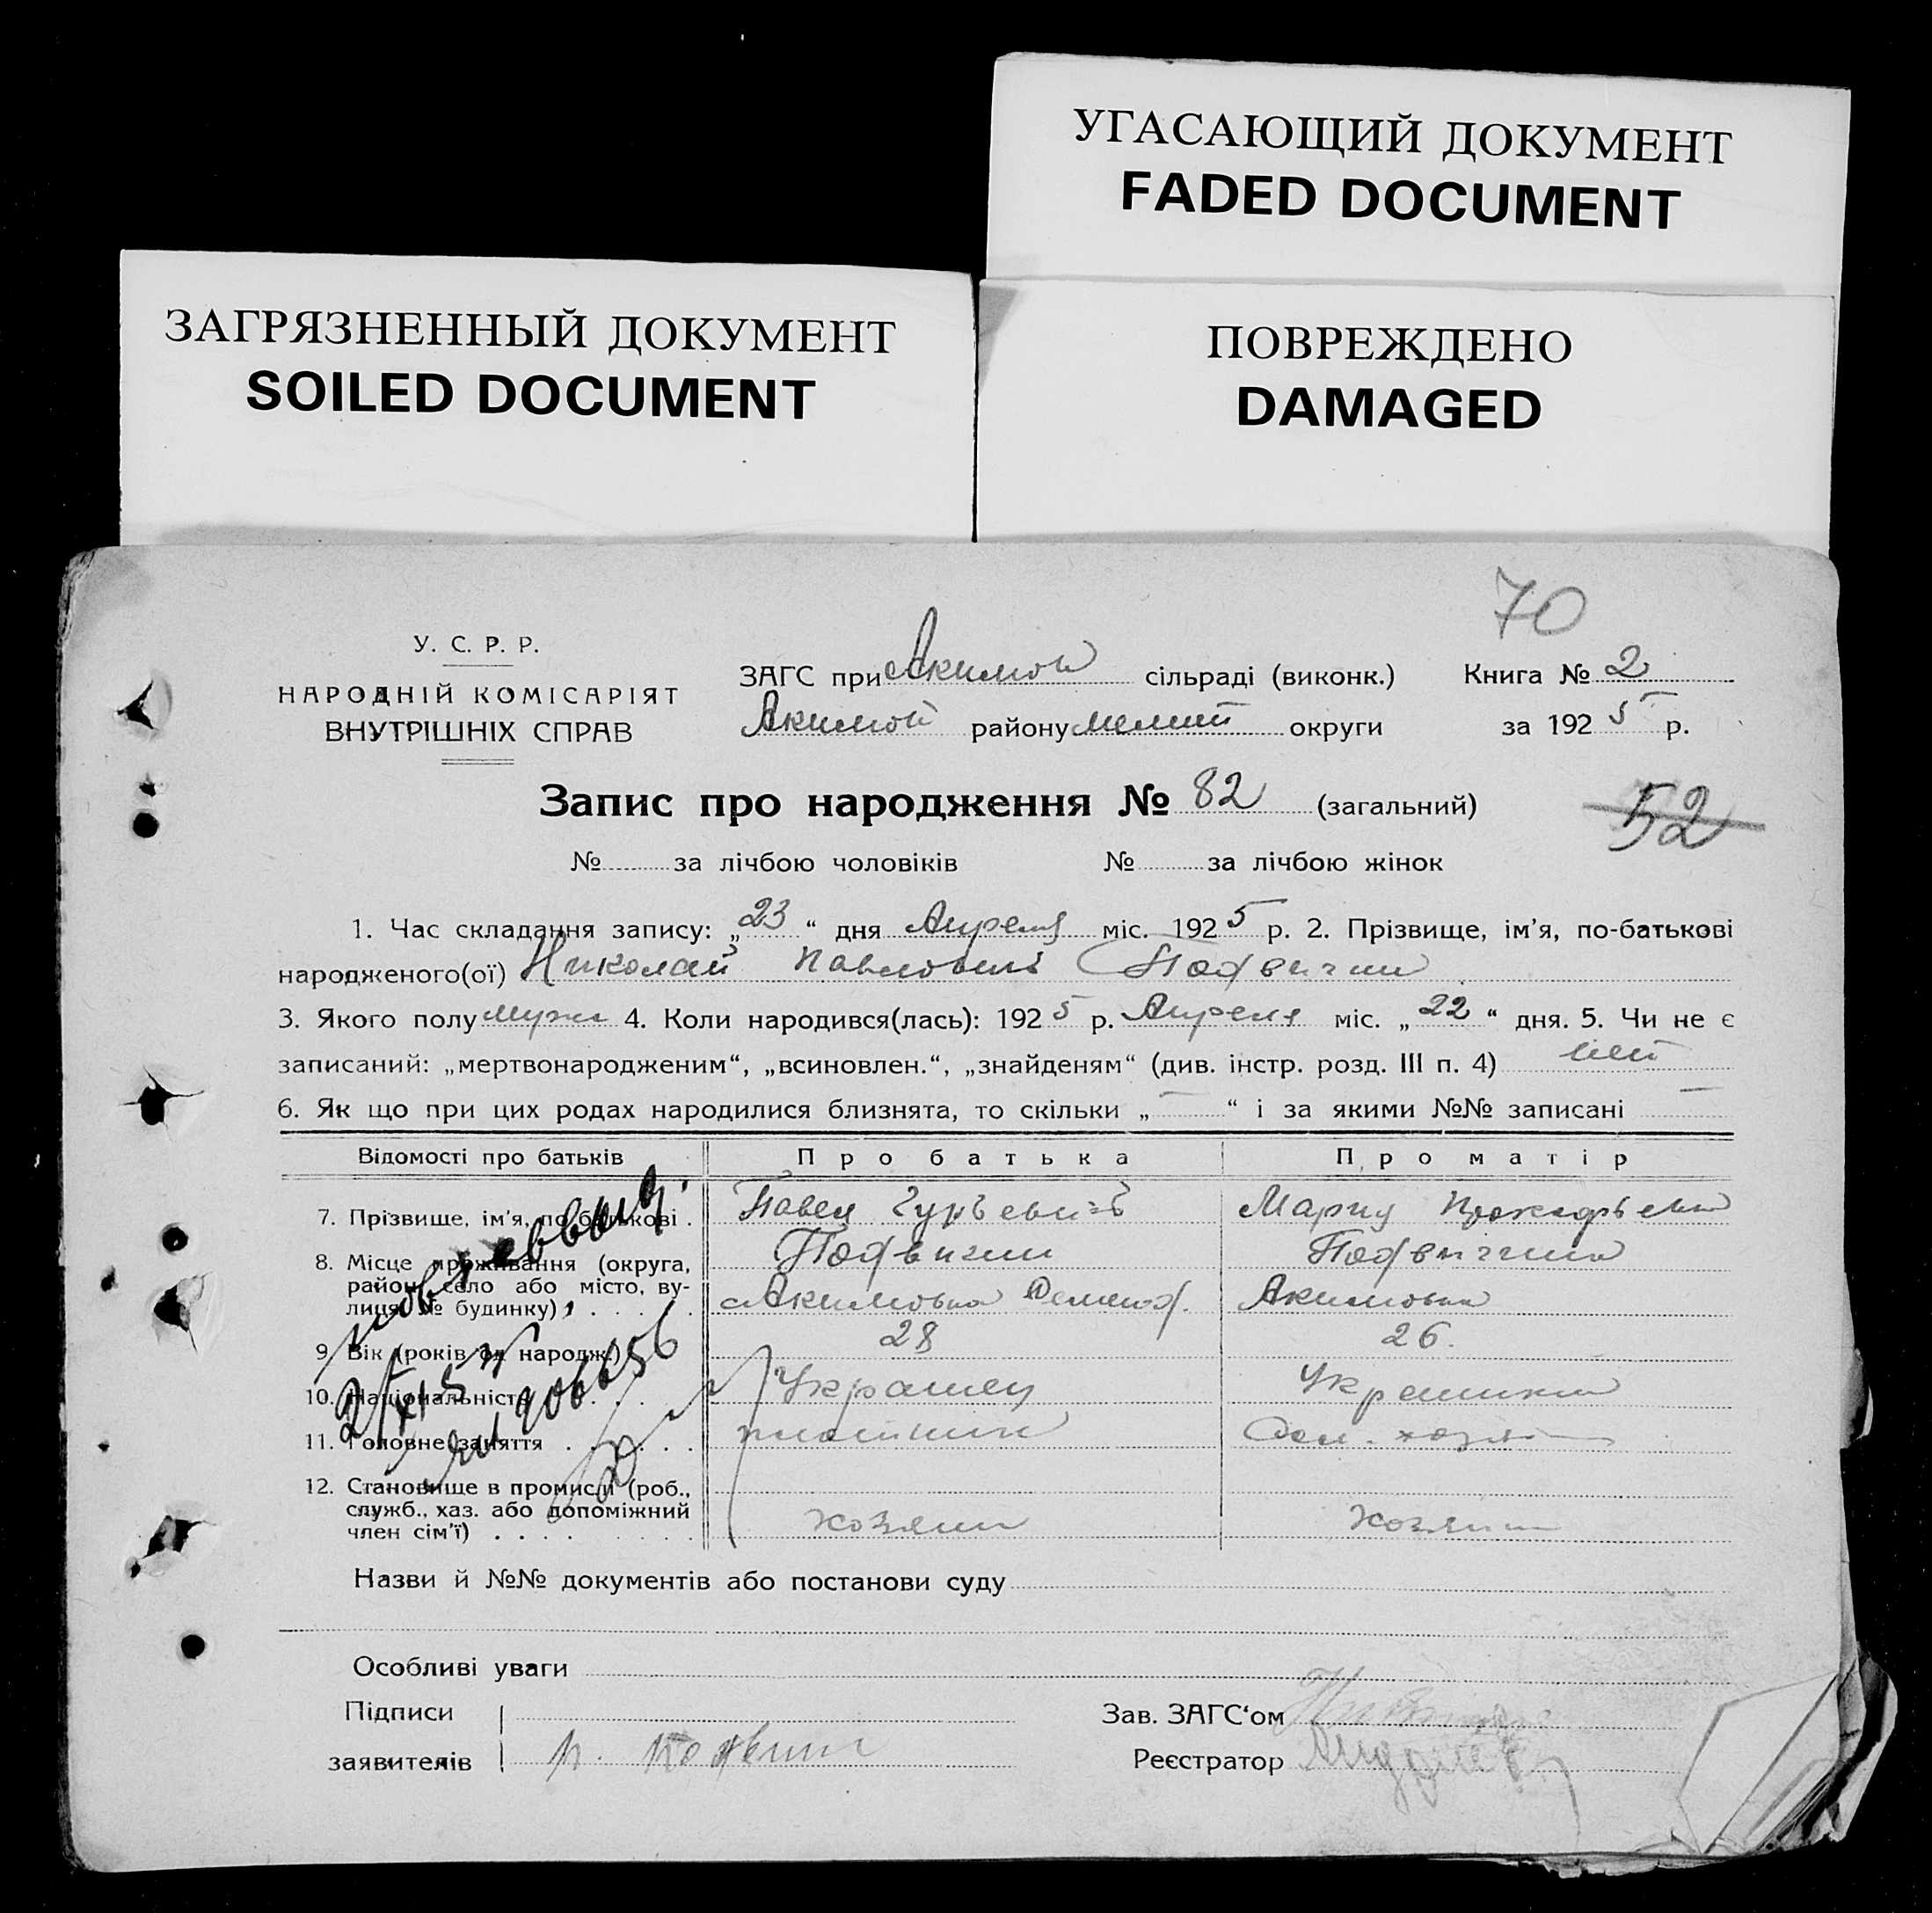 УГАСАЮЩИЙ ДОКУМЕНТ
FADED DOCUMENT
ЗАГРЯЗНЕННЫЙ ДОКУМЕНТ
SOILED DOCUMENT
ПОВРЕЖДЕНО
DAMAGED
70
У. С. Р. Р.
НАРОДНІЙ КОМІСАРІЯТ
ВНУТРІШНІХ СПРАВ
ЗАГС при Акимов сільраді (виконк.) Книга № 2
Акимов району мелит округи за 1925 р.
Запис про народження № 82 (загальний)
52
№ за лічбою чоловіків № за лічбою жінок
1. Час складання запису: „23“ дня Апреля міс. 1925 р. 2. Прізвище, ім'я, по-батькові
народженого(ої) Николай Павлович
3. Якого полу муж 4. Коли народився(лась): 1925 р. Апреля міс. „22“ дня. 5. Чи не є
записаний: „мертвонародженим“, „всиновлен.“, „знайденям“ (див. інстр. розд. III п. 4) нет
6. Як що при цих родах народилися близнята, то скільки „—“ і за якими №№ записані —
Відомості про батьків Про батька Про матір
7. Прізвище, ім'я, по-батькові . Павел Гурьевич Мария
8. Місце проживання (округа,
район, село або місто, ву-
лиця, № будинку) . . . . . Акимовка Акимовка
9. Вік (років од народж.) 28 26.
10. Національність . . . . Украинец Украинка
11. Головне заняття . . . . . . плотник Дом. хозяй
12. Становище в промислі (роб.,
служб., хаз. або допоміжний
член сім'ї) . . . . хозяин хозяин
Назви й №№ документів або постанови суду
Особливі уваги
Підписи
заявителів п.
Зав. ЗАГС‘ом
Реєстратор